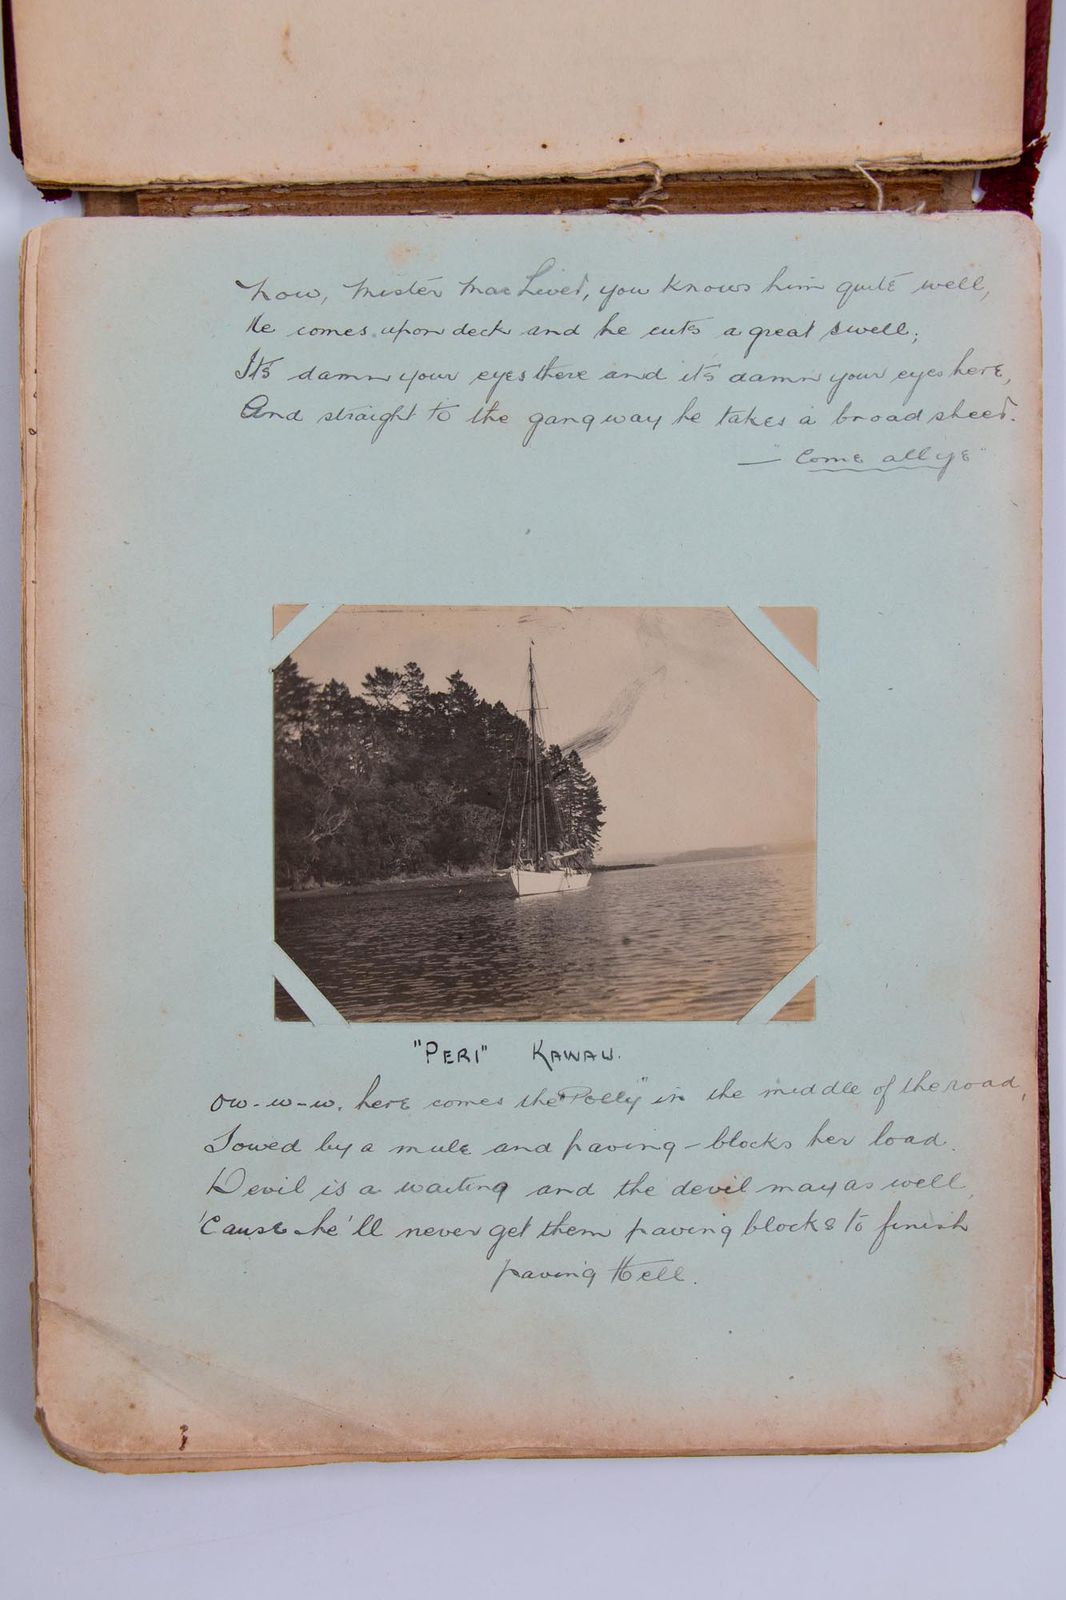 Now, Mister MacLived, you knows him quite well,
He comes upon deck and he cuts a great swell;
It's damn your eyes there and it's damn your eyes here,
And straight to the gangway he takes a broad sheer.
— "Come all ye"
"PERI" KAWAU.
Ow-w-w, here comes the "Polly" in the middle of the road,
Towed by a mule and paving-blocks her load.
Devil is a waiting and the devil may as well,
'Cause he'll never get them paving blocks to finish
paving Hell.